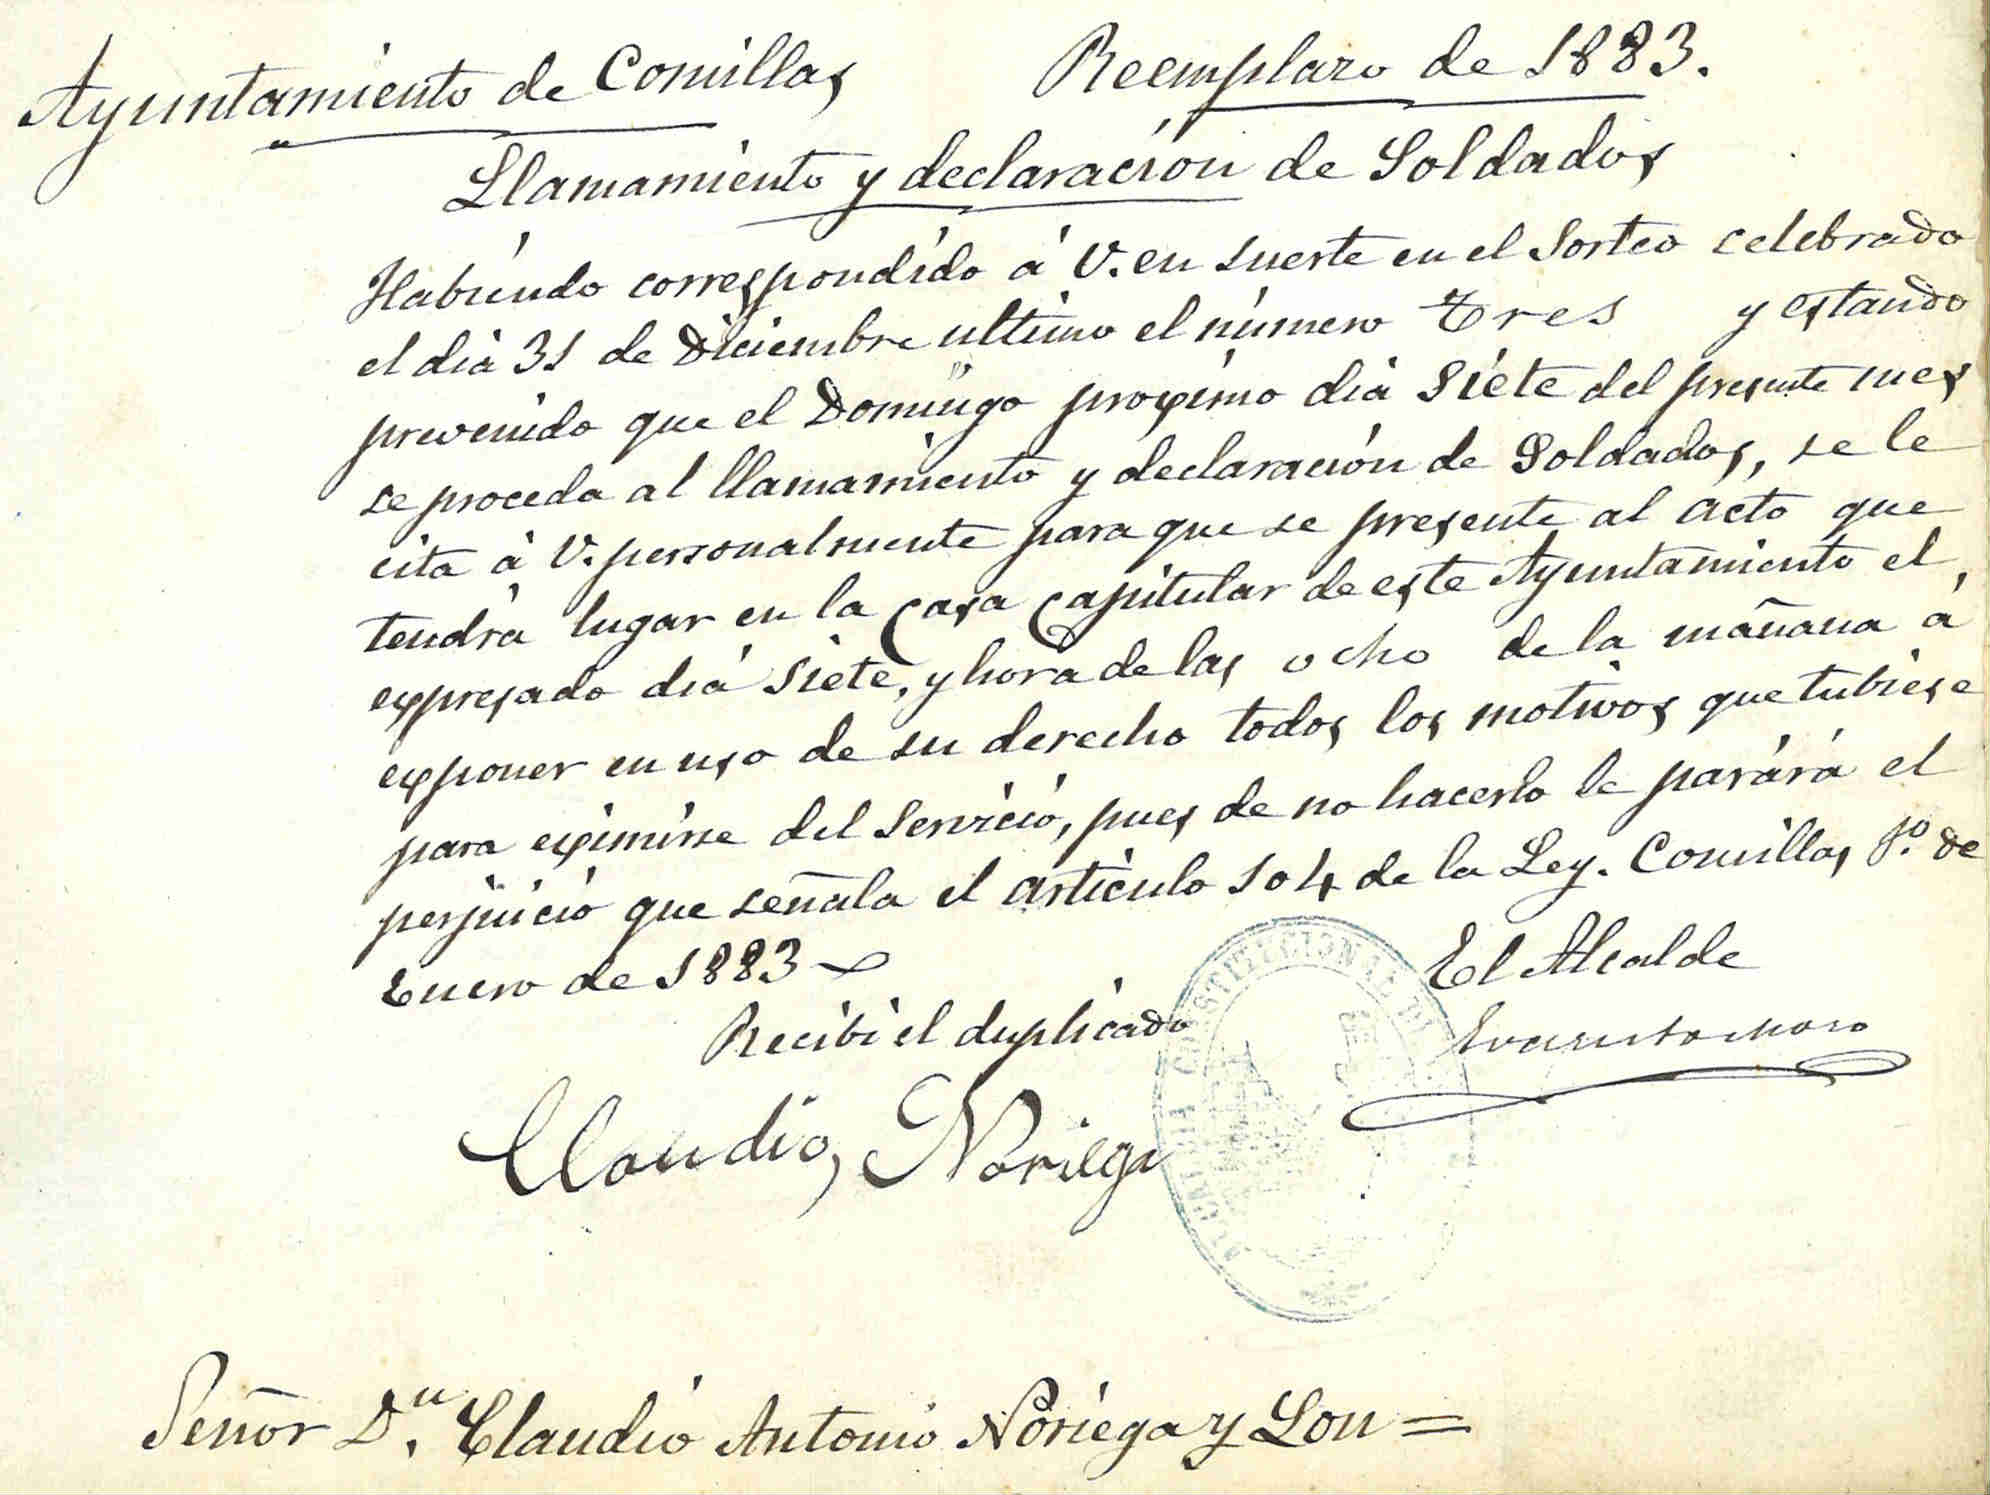 Ayuntamiento de Comillas Reemplazo de 1883.
Llamamiento y declaración de Soldados
Habiendo correspondido á V. en suerte en el Sorteo celebrado
el dia 31 de Diciembre ultimo el número tres y estando
prevenido que el Domingo proximo dia Siete del presente mes
se proceda al llamamiento y declaración de Soldados, se le
cita á V. personalmente para que se presente al acto que
tendrá lugar en la Casa Capitular de este Ayuntamiento el
expresado dia Siete, y hora de las ocho de la mañana á
exponer en uso de su derecho todos los motivos que tubiese
para eximirse del Servicio, pues de no hacerlo le parárá el
perjuicio que señala el artículo 104 de la Ley. Comillas 1º de
Enero de 1883
El Alcalde
Recibi el duplicado
Claudio, Noriega
CONSTITUCIONAL DE
Señor D.n Claudio Antonio Noriega y Lon =